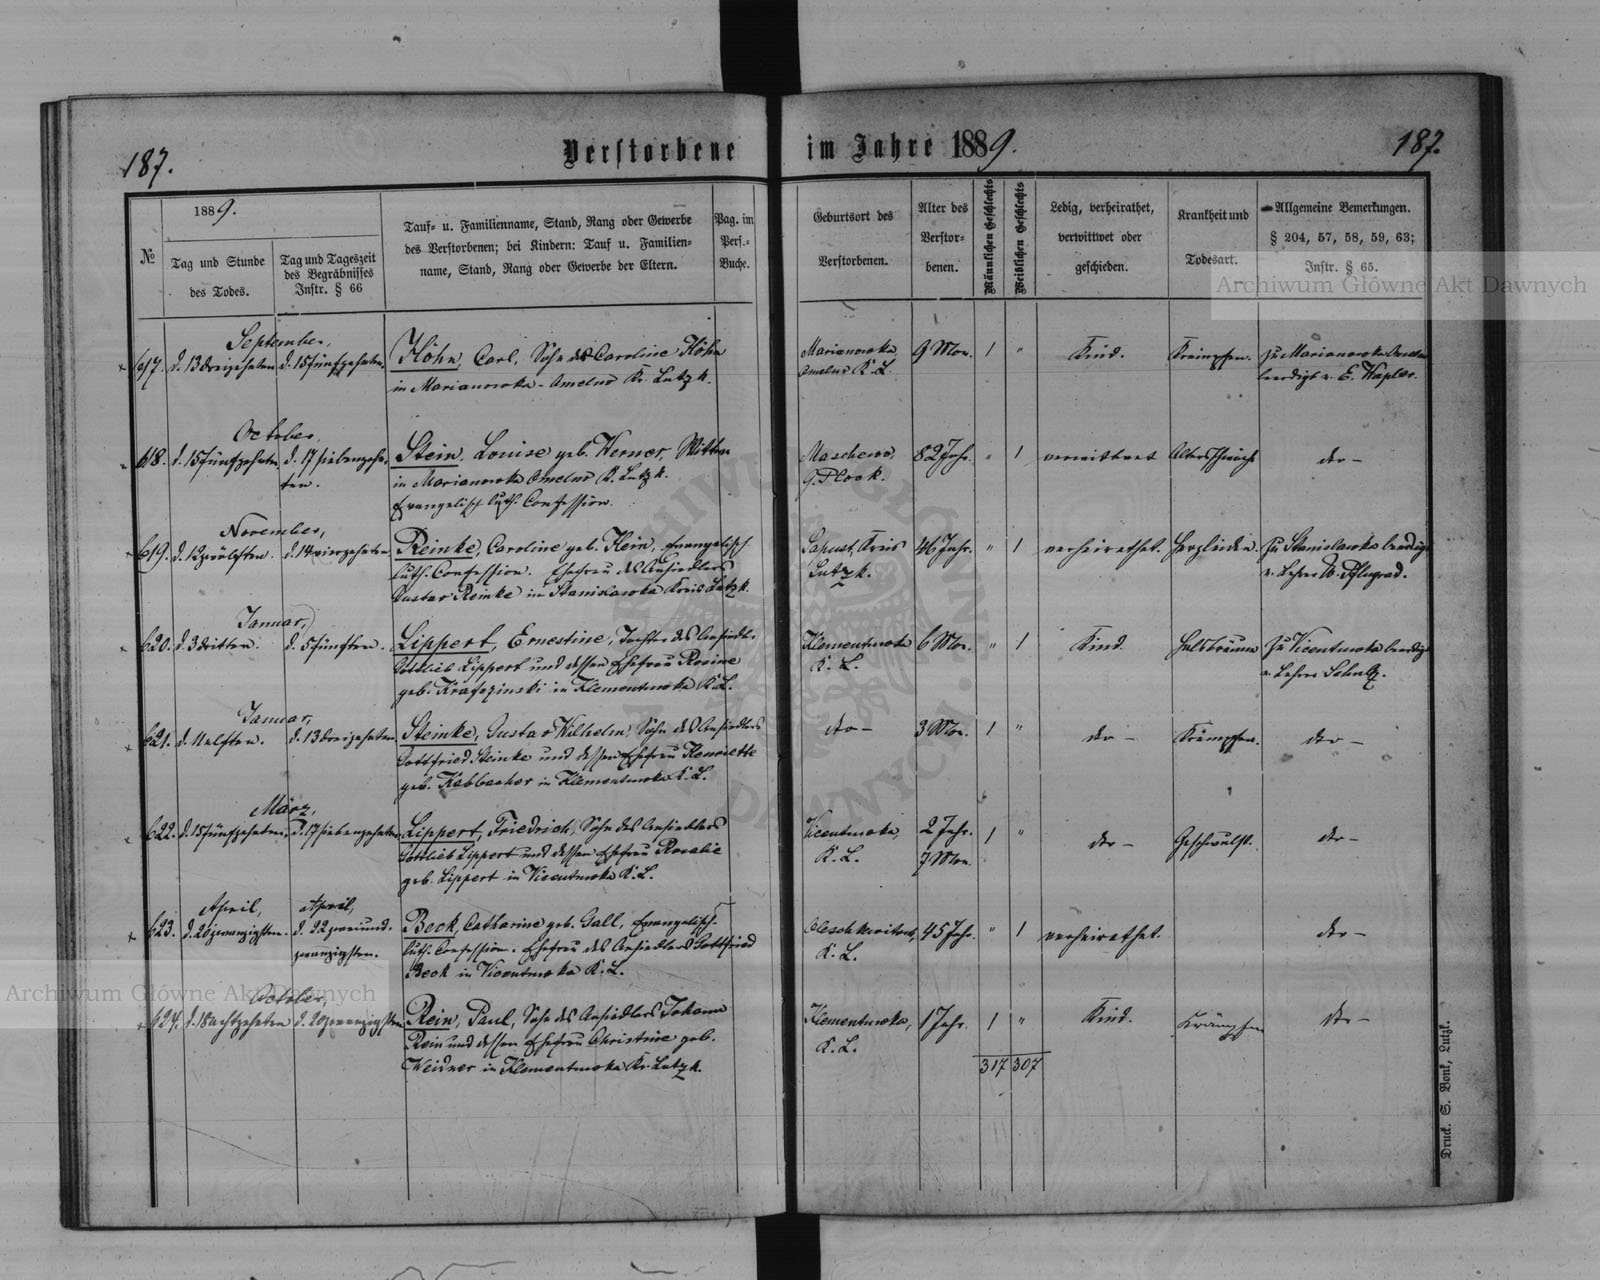 187.
Verstorbene im Jahre 1889.
187.
№
1889.
Tag und Stunde
des Todes.
Tag und Tageszeit
des Begräbnisses
Instr. § 66
Tauf- u. Familienname, Stand, Rang oder Gewerbe
des Verstorbenen; bei Kindern: Tauf u. Familien-
name, Stand, Rang oder Gewerbe der Eltern.
Pag. im
Pers.-
Buche.
Geburtsort des
Verstorbenen.
Alter des
Verstor-
benen.
Männlichen Geschlechts
Weiblichen Geschlechts
Ledig, verheirathet,
verwittwet oder
geschieden.
Krankheit und
Todesart.
Allgemeine Bemerkungen.
§ 204, 57, 58, 59, 63;
Instr. § 65.
Archiwum Główne Akt Dawnych
September,
617. d. 13 dreizehnten d. 15 fünfzehnten. Höhn, Carl, Sohn der Caroline Höhn
in Marianowka-Amelno Kr. Lutzk.
Marianowka
Amelno K. L.
9 Mon. 1 " Kind. Krämpfen. zu Marianowka
beerdigt v. E.
October,
618. d. 15 fünfzehnten d. 17 siebenzehn-
ten.
Stein, Louise geb. Werner, Wittwe
in Marianowka Amelno K. Lutzk.
Evangelisch luth. Confession.
Maschewo,
G. Plock.
82 Jahr. " 1 verwittwet Altersschwäche dto –
November,
619. d. 12 zwölften. d. 14 vierzehnten. Reinke, Caroline geb. Klein, Evangelisch
luth. Confession. Ehefrau des Ansiedlers
Gustav Reinke in Stanislawka Kreis Lutzk.
Kreis
Lutzk.
46 Jahr. " 1 verheirathet. Herzleiden. zu Stanislawka beerdigt
v. Lehrer
Januar,
620. d. 3 dritten. d. 5 fünften. Lippert, Ernestine, Tochter des Ansiedl.
Gottlieb Lippert und dessen Ehefrau Rosine
geb. in Klementowka K. L.
Klementowka
K. L.
6 Mon. " 1 Kind. Halsbräune zu Vicentowka beerdigt
v. Lehrer Schulz.
Januar,
621. d. 11 elften. d. 13 dreizehnten. Steinke, Gustav Wilhelm, Sohn des Ansiedlers
Gottfried Steinke und dessen Ehefrau Henriette
geb. in Klementowka K. L.
dto – 3 Mon. 1 " dto – Krämpfen. dto –
März,
622. d. 15 fünfzehnten. d. 17 siebenzehnten. Lippert, Friedrich, Sohn des Ansiedlers
Gottlieb Lippert und dessen Ehefrau Rosalie
geb. Lippert in Vicentowka K. L.
Vicentowka,
K. L.
2 Jahr.
7 Mon.
1 " dto – Geschwulst. dto –
April, April,
623. d. 20 zwanzigsten. d. 22 zweiund-
zwanzigsten.
Beck, Catharine geb. Gall, Evangelisch-
luth. Confession. Ehefrau des Ansiedlers Gottfried
Beck in Vicentowka K. L.
K. L.
45 Jahr. " 1 verheirathet. dto –
Archiwum Główne Akt Dawnych
October,
624. d. 18 achtzehnten d. 20 zwanzigsten Rein, Paul, Sohn des Ansiedlers Johann
Rein und dessen Ehefrau Christine geb.
Weidner in Klementowka Kr. Lutzk.
Klementowka,
K. L.
1 Jahr. 1 " Kind. Krämpfen dto –
317 307
Druck. S. Bonk, Lutzk.